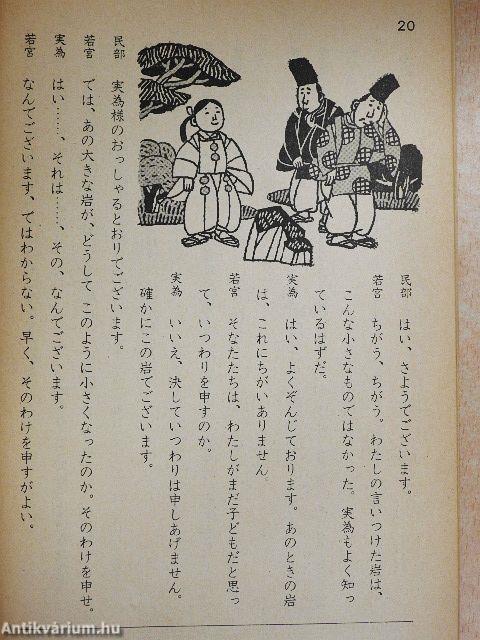 20
民部　はい、さようでございます。
若宮　ちがう、ちがう。わたしの言いつけた岩は、
こんな小さなものではなかった。実為もよく知っ
ているはずだ。
実為　はい、よくぞんじております。あのときの岩
は、これにちがいありません。
若宮　そなたたちは、わたしがまだ子どもだと思っ
て、いつわりを申すのか。
実為　いいえ、決していつわりは申しあげません。
確かにこの岩でございます。
民部　実為様のおっしゃるとおりでございます。
若宮　では、あの大きな岩が、どうして このように小さくなったのか。そのわけを申せ。
実為　はい……、それは……、その、なんでございます。
若宮　なんでございます、ではわからない。早く、そのわけを申すがよい。
Antikvárium.hu